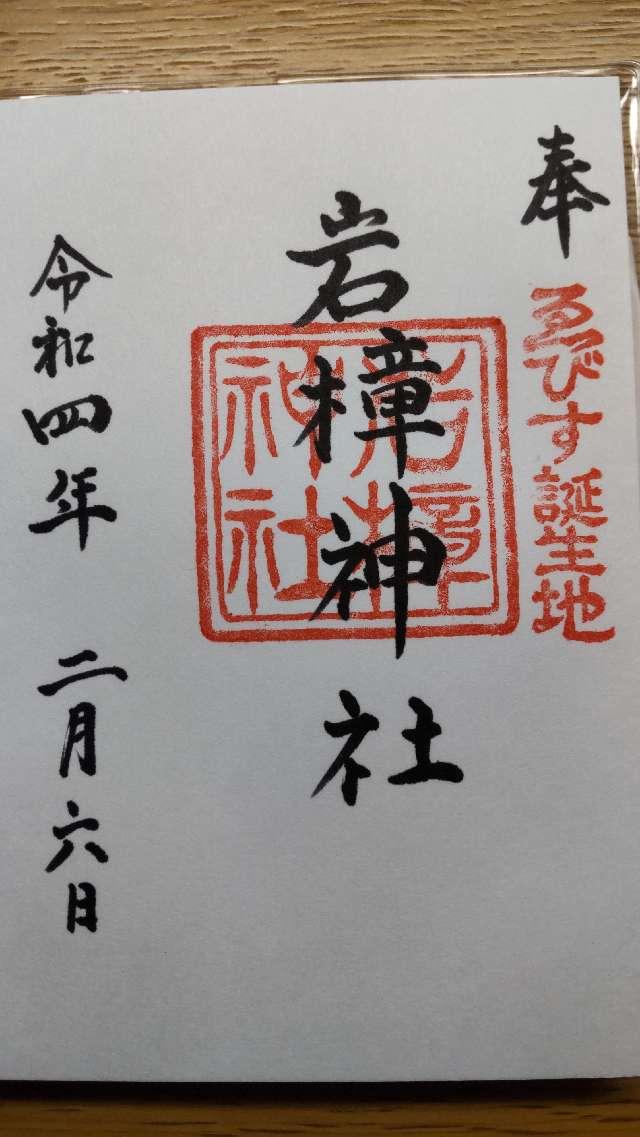 奉
ゑびす誕生地
岩樟神社
岩樟
神社
令和四年 二月六日